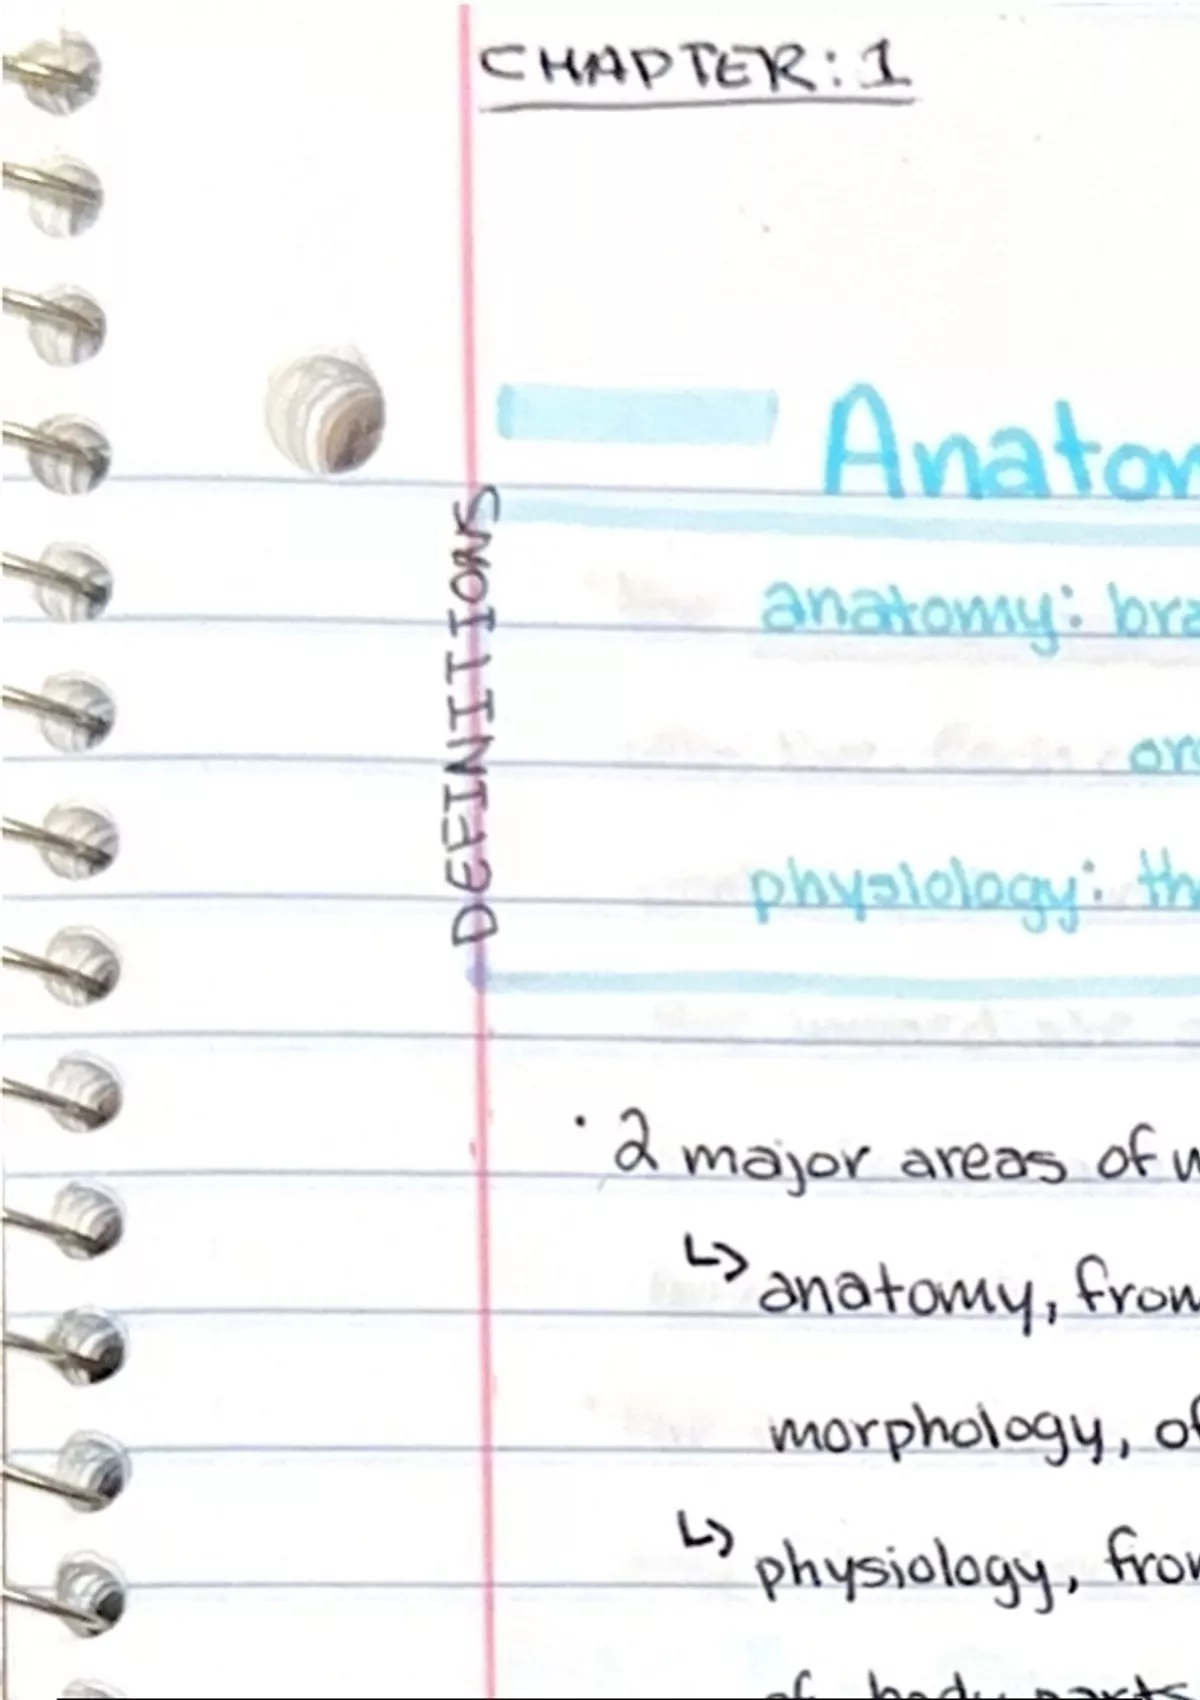 CHAPTER: 1
Anatom
DEFINITIONS
anatomy: bra
org
physiology: th
· 2 major areas of
↳ anatomy, from
morphology, of
↳ physiology, from
of body parts